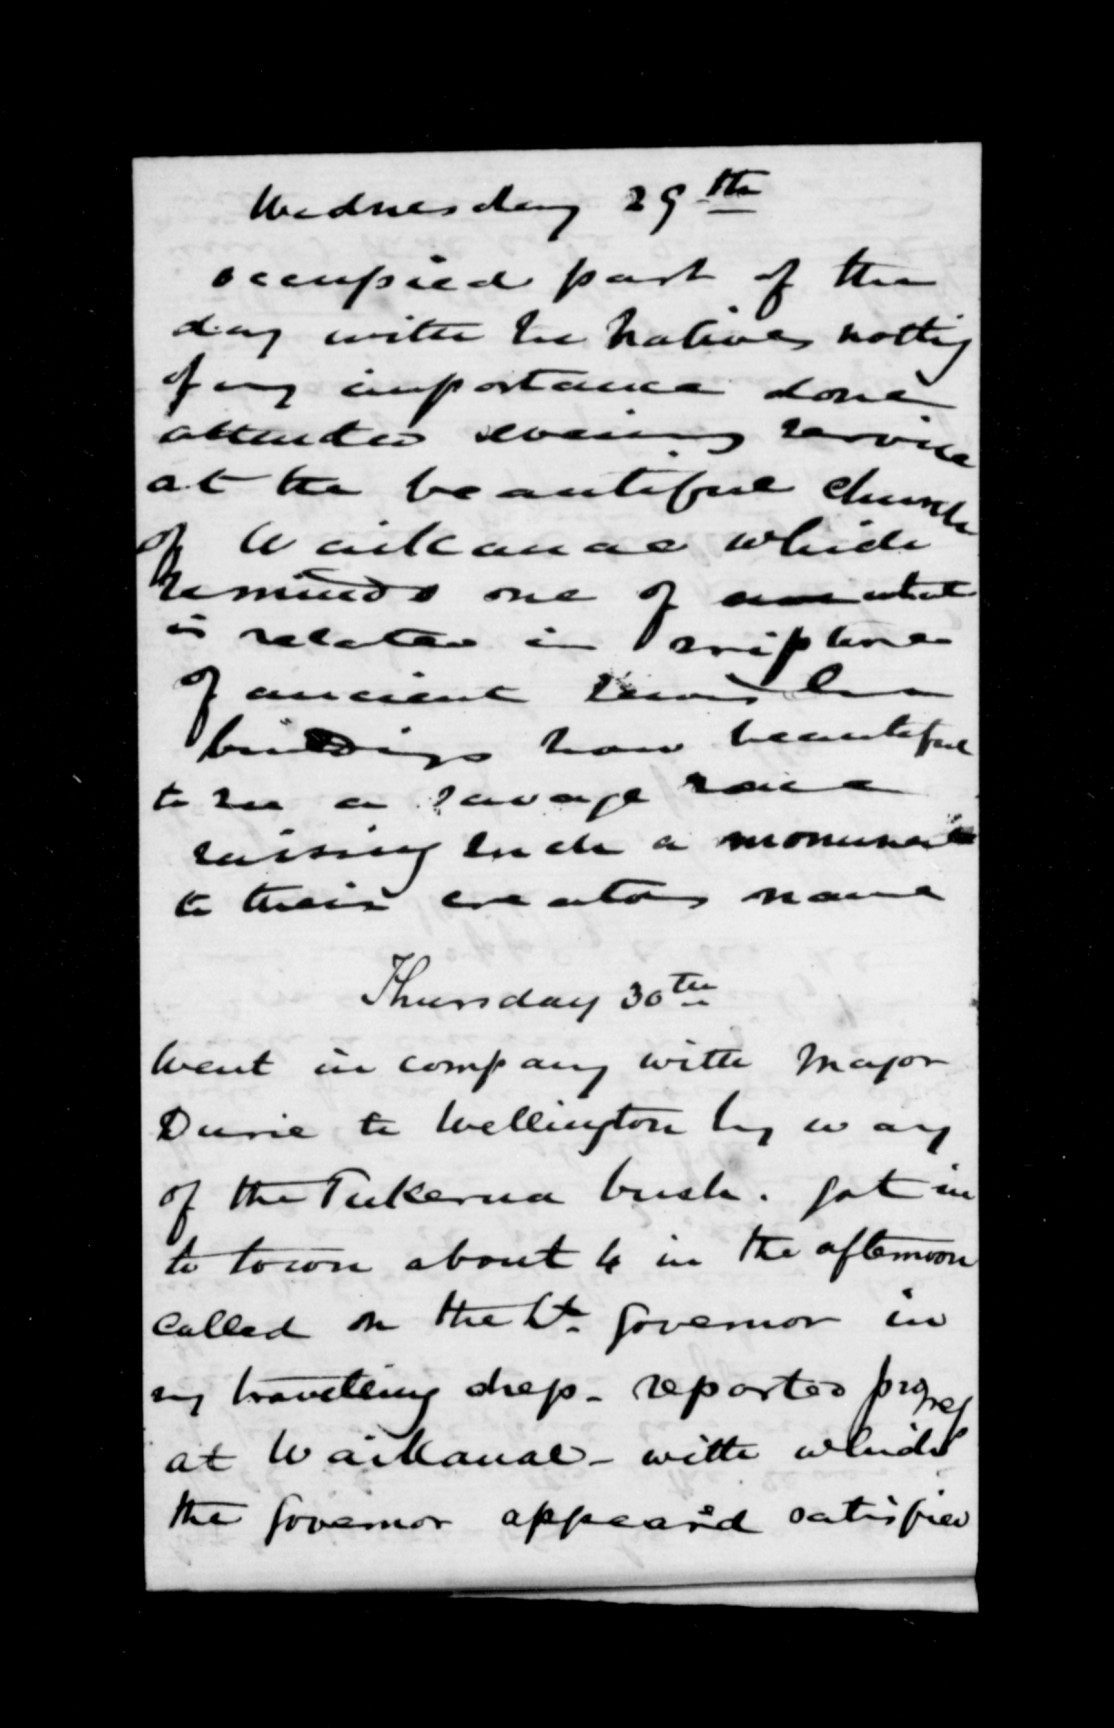 Wednesday 29th
occupied part of the
day with the Natives nothing
of any importance done
attended evening service
at the beautiful church
of Waikanae which
reminds one of what
is related in Scripture
of ancient
buildings how beautiful
to see a savage race
raising such a monument
to their creators name
Thursday 30th
Went in company with Major
Durie to Wellington by way
of the Pukerua bush. got in
to town about 4 in the afternoon
called on the Lt. Governor in
my travelling dress - reported progress
at Waikanae - with which
the Governor appeared satisfied